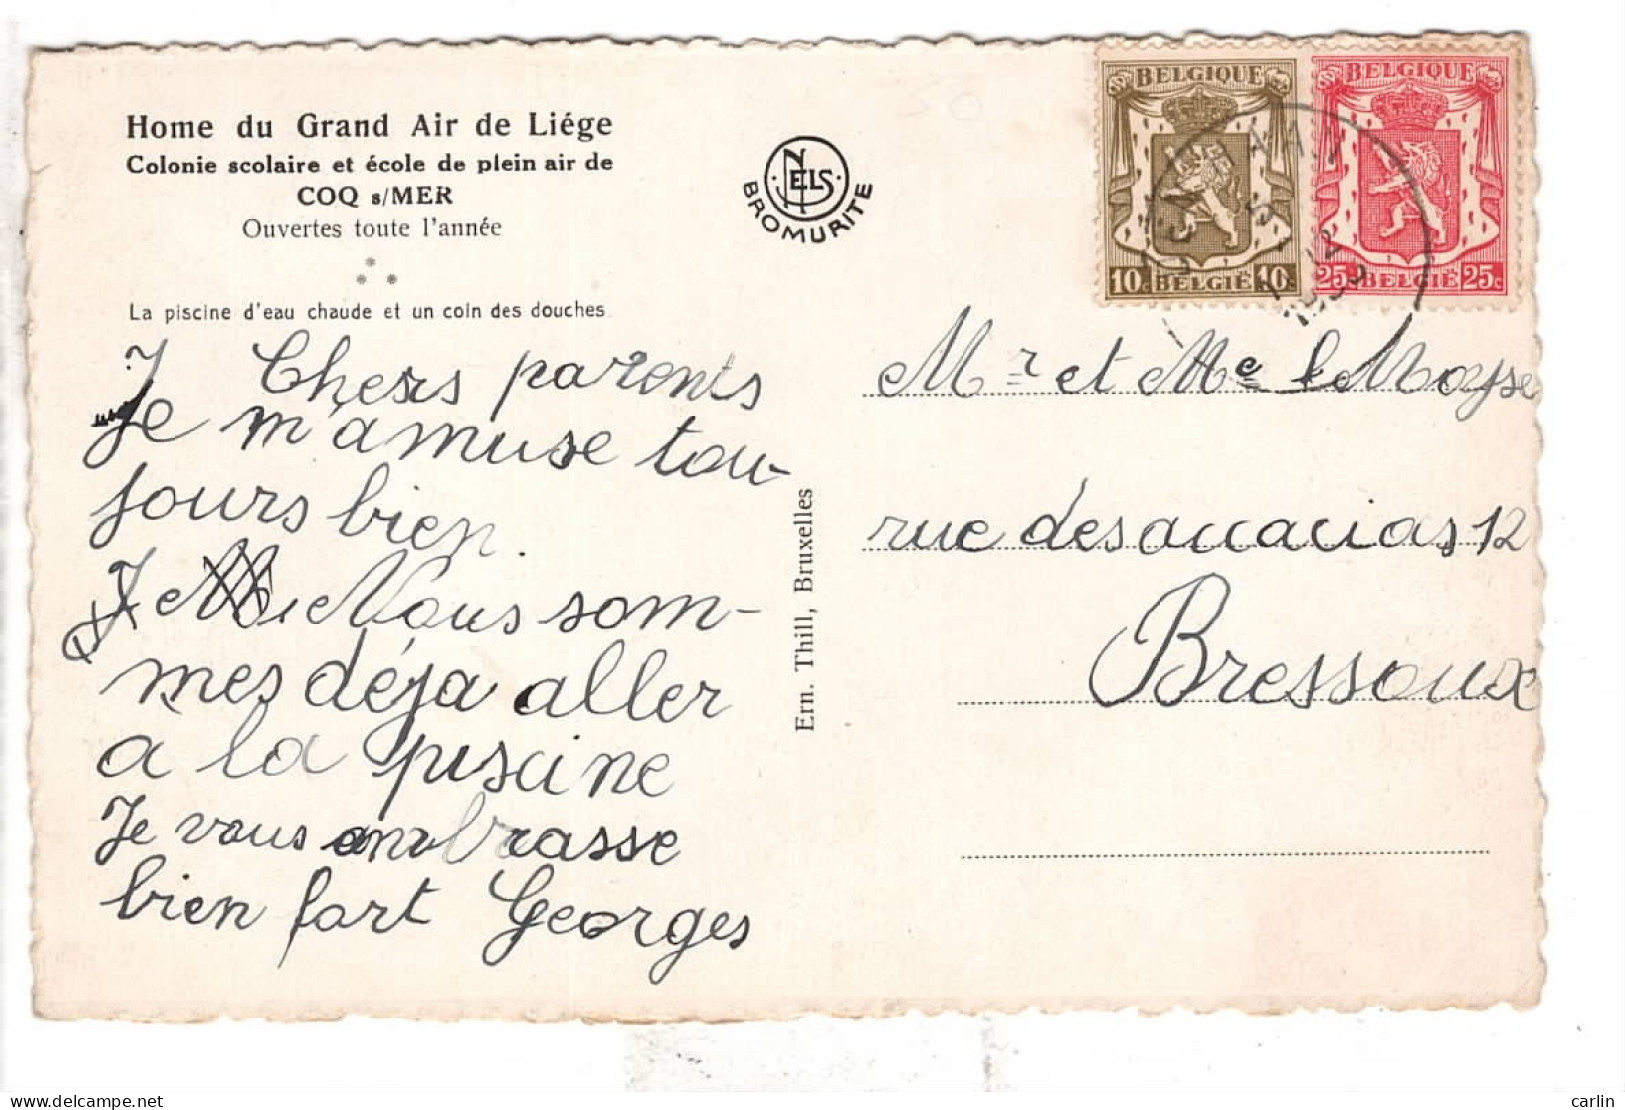 Home du Grand Air de Liége
Colonie scolaire et école de plein air de
COQ s/MER
Ouvertes toute l'année
La piscine d'eau chaude et un coin des douches.
NELS
BROMURITE
BELGIQUE
10c BELGIË 10c
BELGIQUE
25c BELGIË 25c
Chers parents
Je m'amuse tou-
jours bien.
Nous som-
mes déja aller
a la piscine
Je vous ambrasse
bien fort Georges
Ern. Thill, Bruxelles
Mr et Me leMoyse
rue des accacias 12
Bressoux
carlin